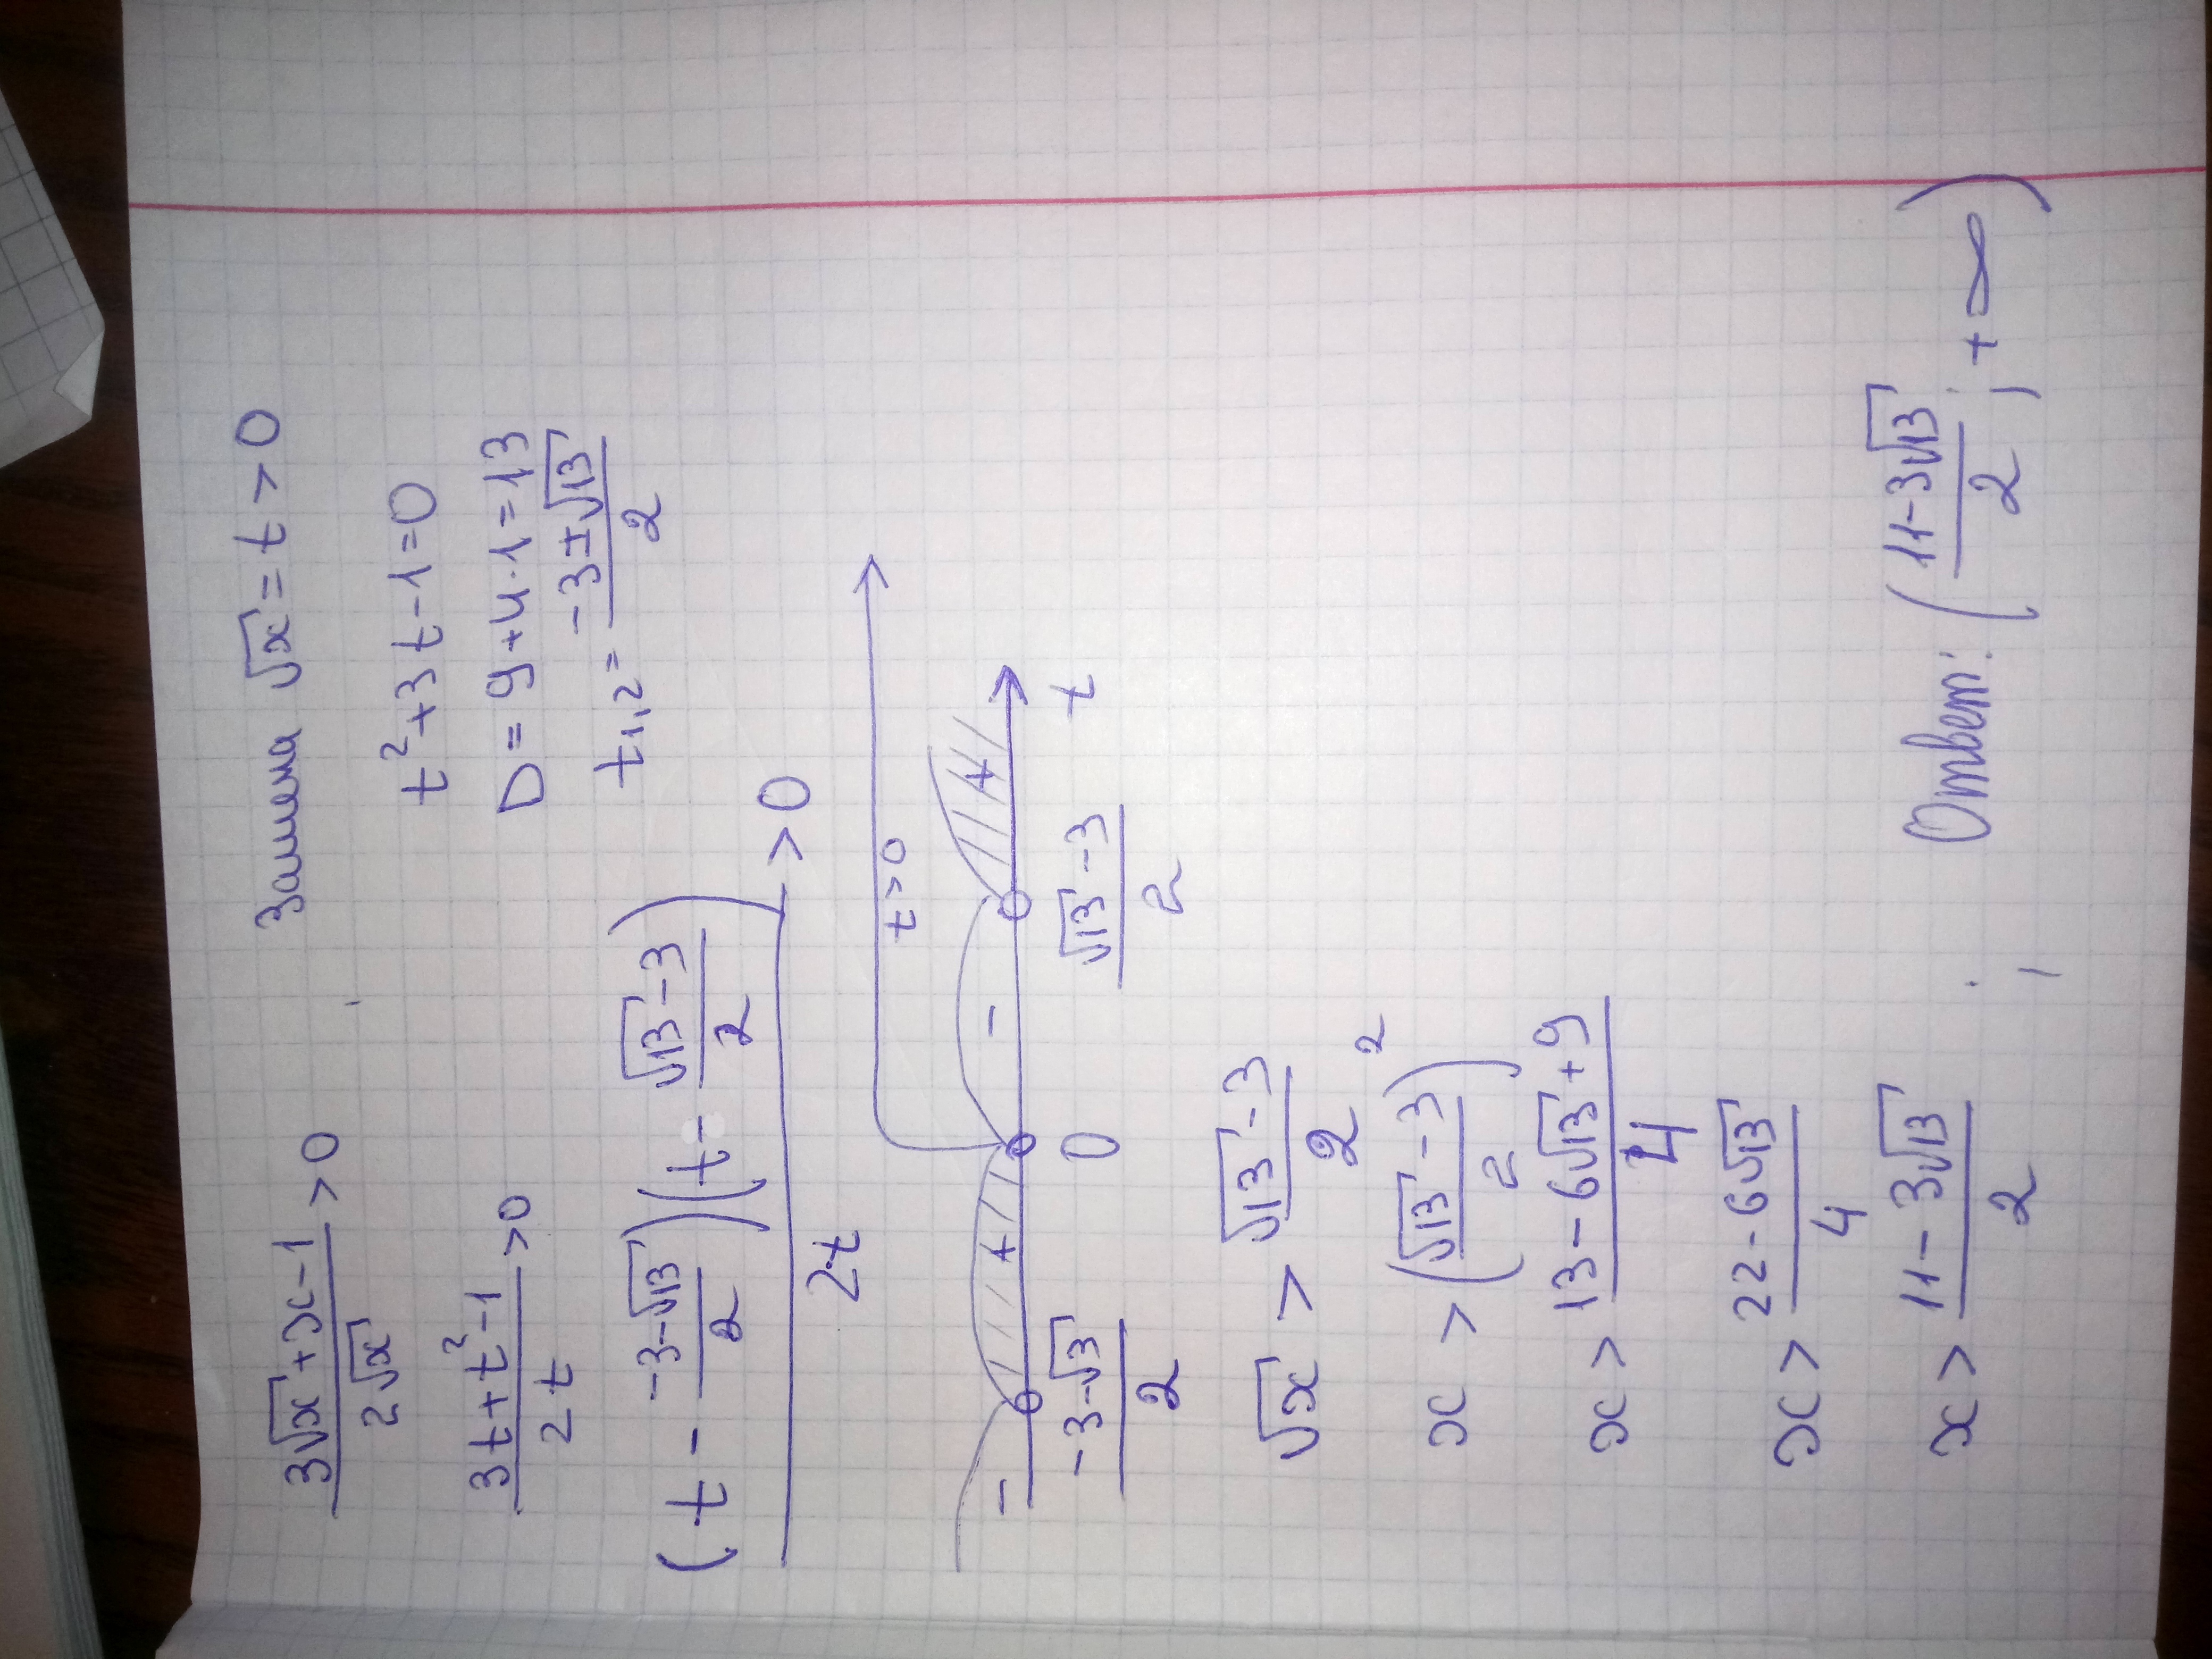 (3√x + x - 1)/(2√x) > 0    Замена √x = t > 0
(3t + t² - 1)/(2t) > 0    t² + 3t - 1 = 0
D = 9 + 4·1 = 13
t₁,₂ = (-3 ± √13)/2
(t - (-3-√13)/2)(t - (√13-3)/2)/(2t) > 0
t > 0
- + - +
(-3-√13)/2    0    (√13-3)/2    t
√x > (√13-3)/2
x > ((√13-3)/2)²
x > (13 - 6√13 + 9)/4
x > (22 - 6√13)/4
x > (11 - 3√13)/2    Ответ: ((11-3√13)/2 ; +∞)